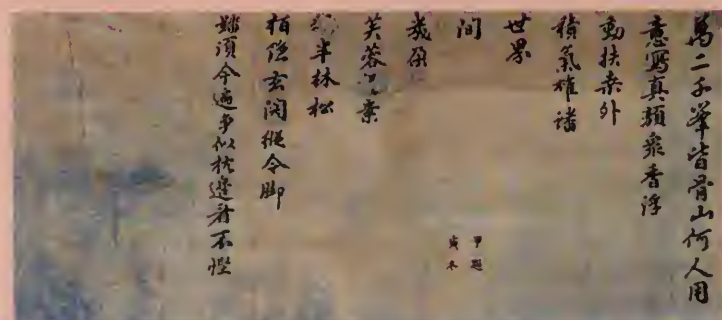 萬二千峯皆骨山何人用
意寫真顔衆香浮
動扶桑外
積氣雄蟠
世界
間
幾朶
芙蓉揚素
彩半林松
栢隱玄関縱令脚
踏須今遍爭似枕邊看不慳
甲題
寅冬